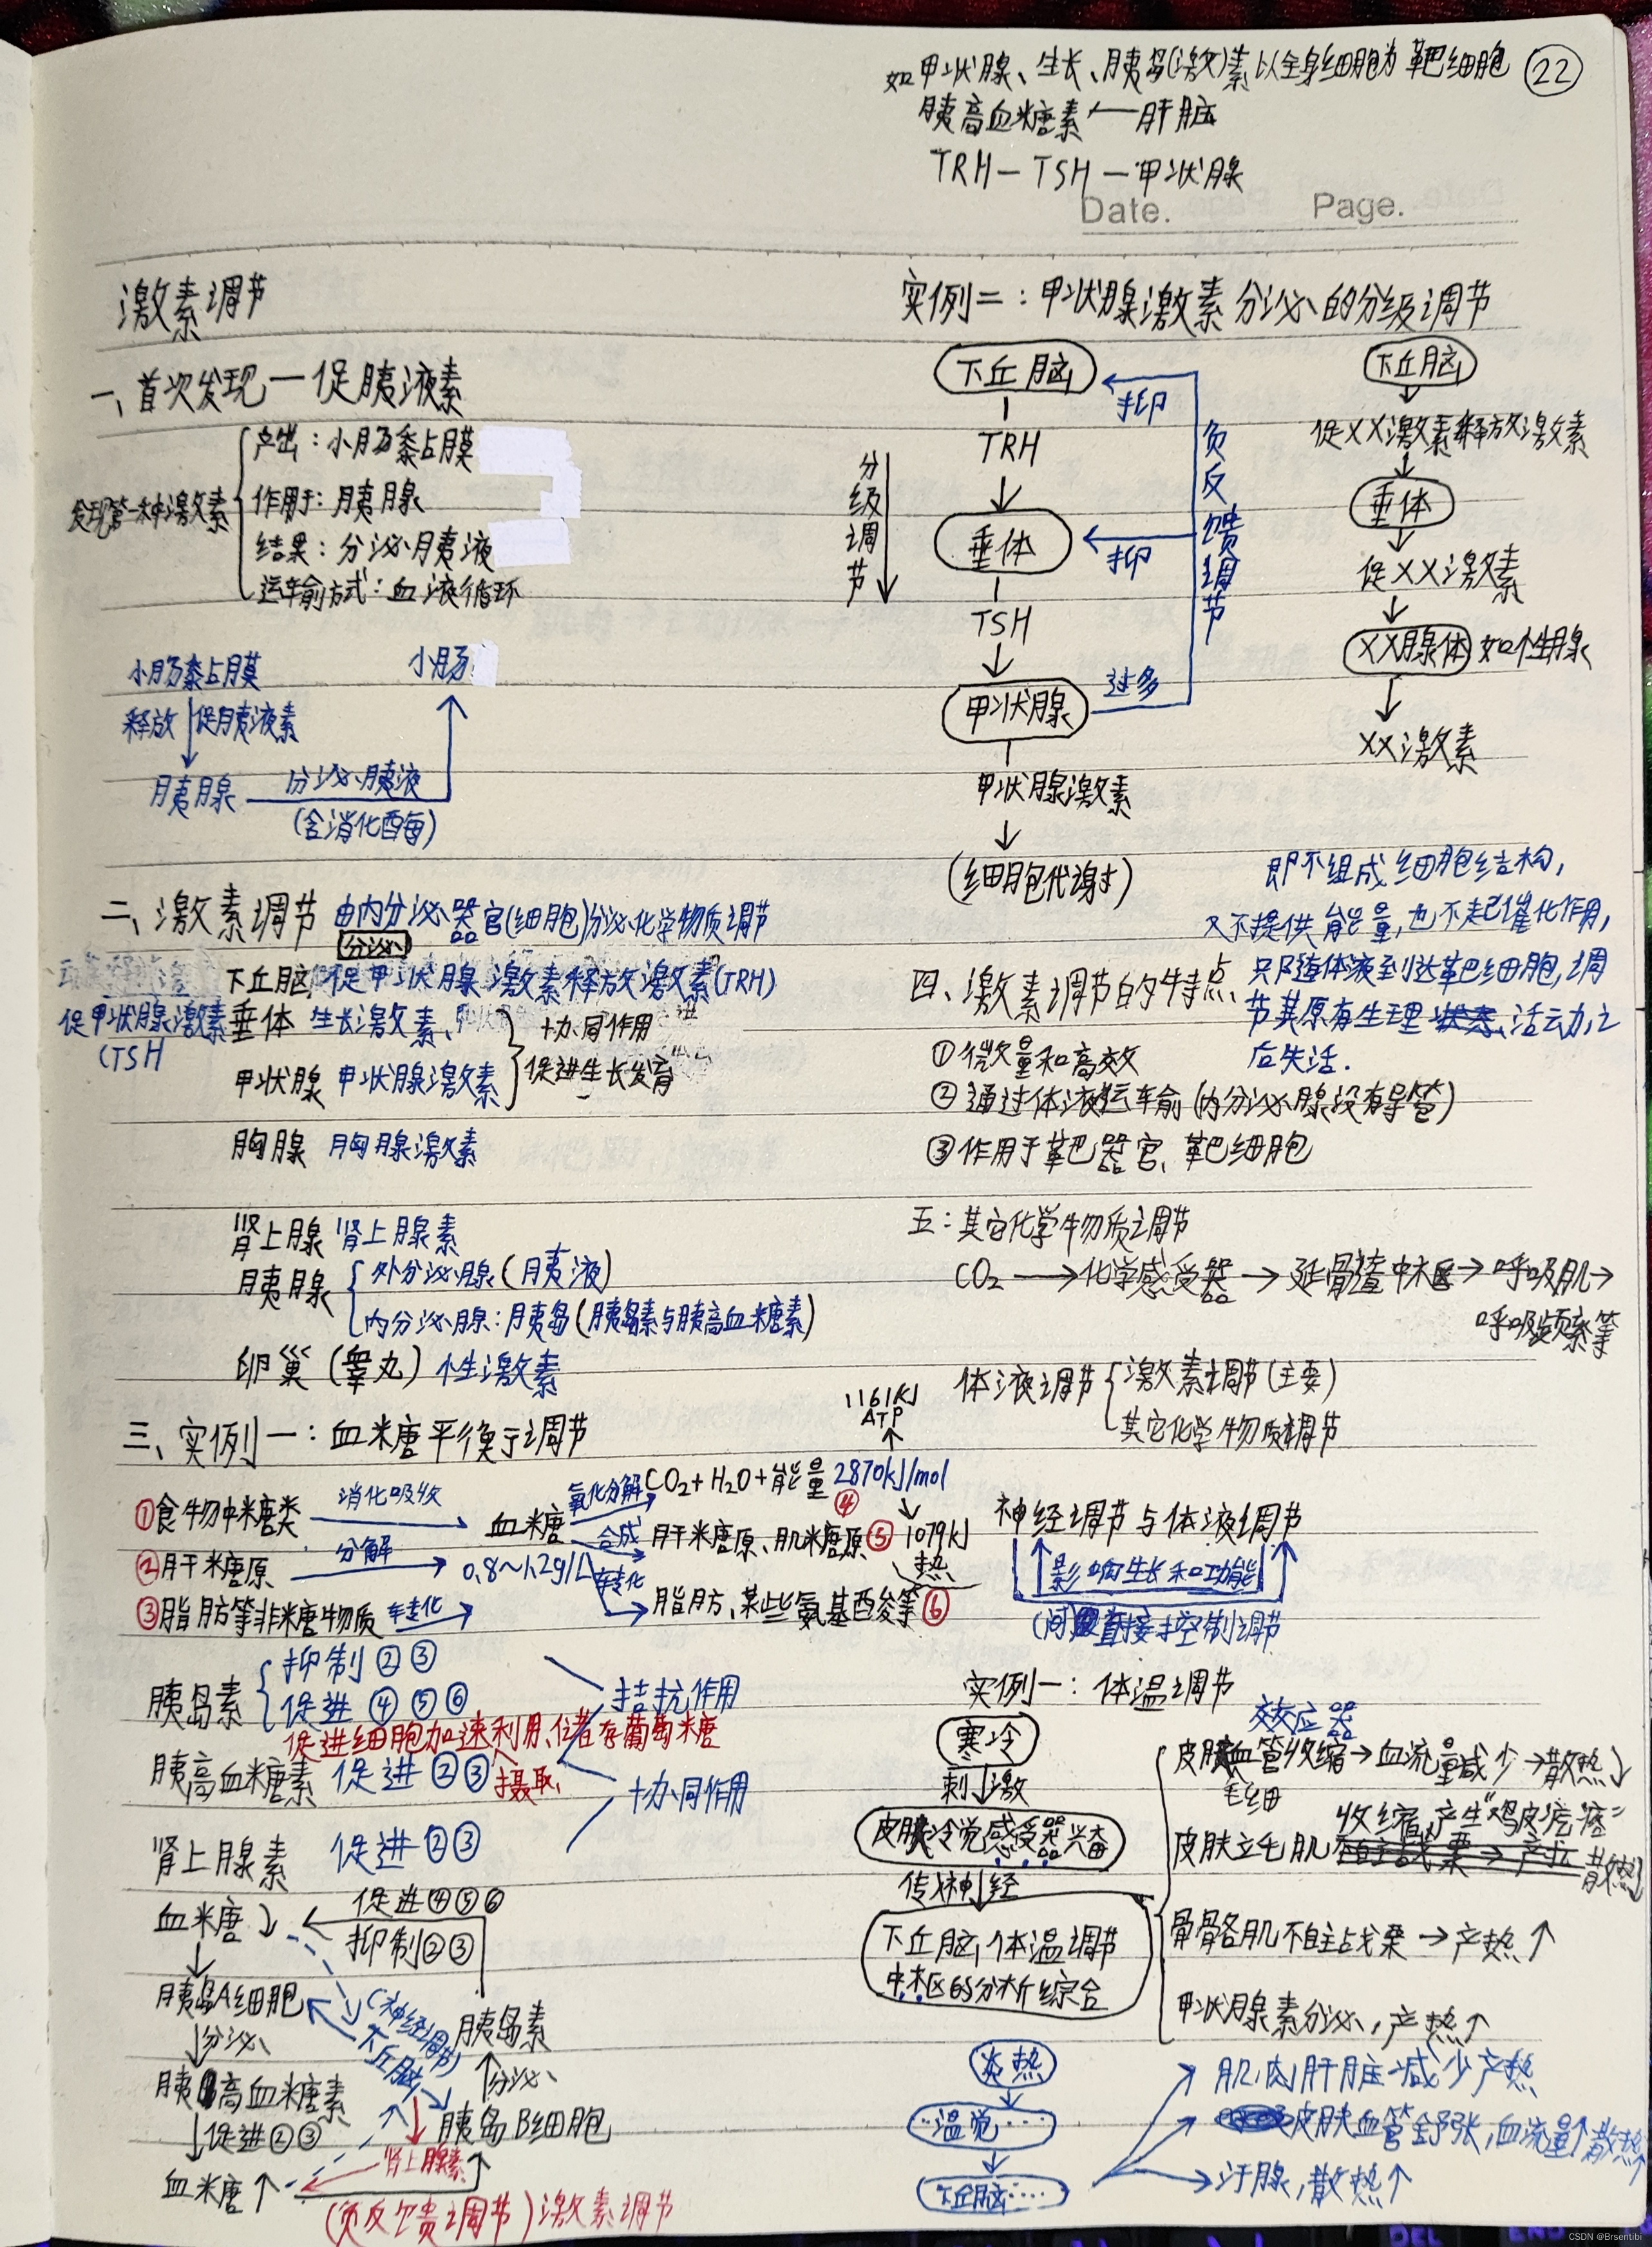 如甲状腺、生长、胰岛(激)素以全身细胞为靶细胞 22
胰高血糖素←肝脏
TRH—TSH—甲状腺
Date. Page.
激素调节
一、首次发现—促胰液素
发现第一种激素
产出：小肠黏膜
作用于：胰腺
结果：分泌胰液
运输方式：血液循环
小肠黏膜 小肠
释放 促胰液素
胰腺 分泌胰液
(含消化酶)
二、激素调节 由内分泌器官(细胞)分泌化学物质调节
分泌
下丘脑 促甲状腺激素释放激素(TRH)
促甲状腺激素 垂体 生长激素、
(TSH
协同作用
促进生长发育
甲状腺 甲状腺激素
胸腺 胸腺激素
肾上腺 肾上腺素
胰腺
外分泌腺(胰液)
内分泌腺：胰岛(胰岛素与胰高血糖素)
卵巢(睾丸) 性激素
三、实例一：血糖平衡于调节
①食物中糖类 消化吸收
②肝糖原 分解
③脂肪等非糖物质 转化
血糖
0.8~1.2g/L
氧化分解 CO₂+H₂O+能量 2870kJ/mol
④
1161KJ
ATP
1079kJ
热
合成 肝糖原、肌糖原⑤
转化 脂肪、某些氨基酸等⑥
胰岛素
抑制②③
促进④⑤⑥
促进细胞加速利用、储存葡萄糖
摄取、
拮抗作用
胰高血糖素 促进②③
协同作用
肾上腺素 促进②③
血糖↓
促进④⑤⑥
抑制②③
胰岛A细胞
分泌
胰高血糖素
促进②③
血糖↑
(神经调节)
下丘脑
胰岛素
分泌
胰岛B细胞
肾上腺素
(负反馈调节)激素调节
实例二：甲状腺激素分泌的分级调节
下丘脑
TRH
垂体
TSH
甲状腺
甲状腺激素
(细胞代谢)
分级调节
抑
抑
过多
负反馈调节
下丘脑
促XX激素释放激素
垂体
促XX激素
XX腺体 如性腺
XX激素
四、激素调节的特点、
即不组成细胞结构,
又不提供能量,也不起催化作用,
只随体液到达靶细胞,调
节其原有生理状态、活动,之
后失活.
①微量和高效
②通过体液运输(内分泌腺没有导管)
③作用于靶器官、靶细胞
五：其它化学物质调节
CO₂→化学感受器→延髓中枢→呼吸肌→
呼吸频率等
体液调节
激素调节(主要)
其它化学物质调节
神经调节与体液调节
影响生长和功能
(间)直接控制调节
实例一：体温调节
寒冷
刺激
皮肤冷觉感受器兴奋
传入神经
下丘脑体温调节
中枢的分析综合
效应器
皮肤血管收缩→血流量减少→散热↓
毛细
收缩,产生"鸡皮疙瘩"
皮肤立毛肌 不自主战栗→产热 散热↓
骨骼肌不自主战栗→产热↑
甲状腺素分泌,产热↑
炎热
··温觉····
下丘脑····
肌肉肝脏减少产热
皮肤血管舒张,血流量↑散热↑
汗腺,散热↑
DEL END
CSDN @Brsentibi